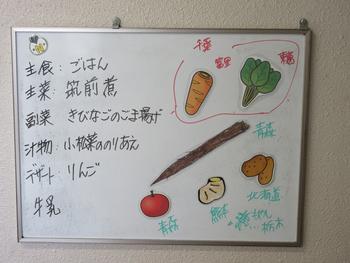 主食：ごはん
主菜：筑前煮
副菜：きびなごのごま揚げ
汁物：小松菜ののりあえ
デザート：りんご
牛乳
千葉
富里
青森
北海道
栃木
青森